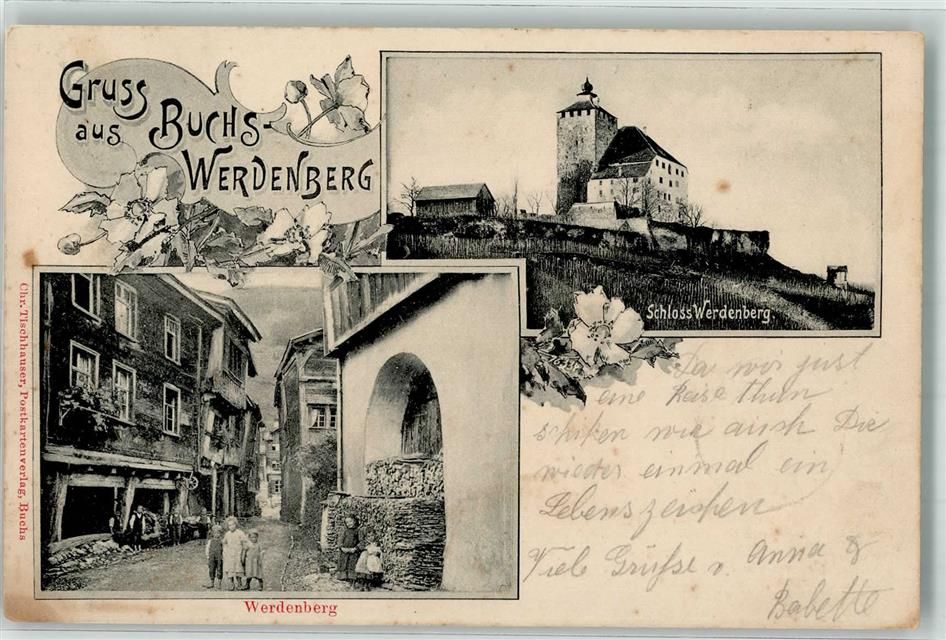 Gruss
aus Buchs-
Werdenberg
Schloss Werdenberg.
Chr. Tischhauser, Postkartenverlag, Buchs
Werdenberg
Da wir just
eine Reise thun
schiken wir auch Die
wieder einmal ein
Lebenszeichen
Viele Grüsse v. Anna &
Babette